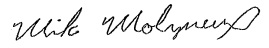 Mike Molyneux